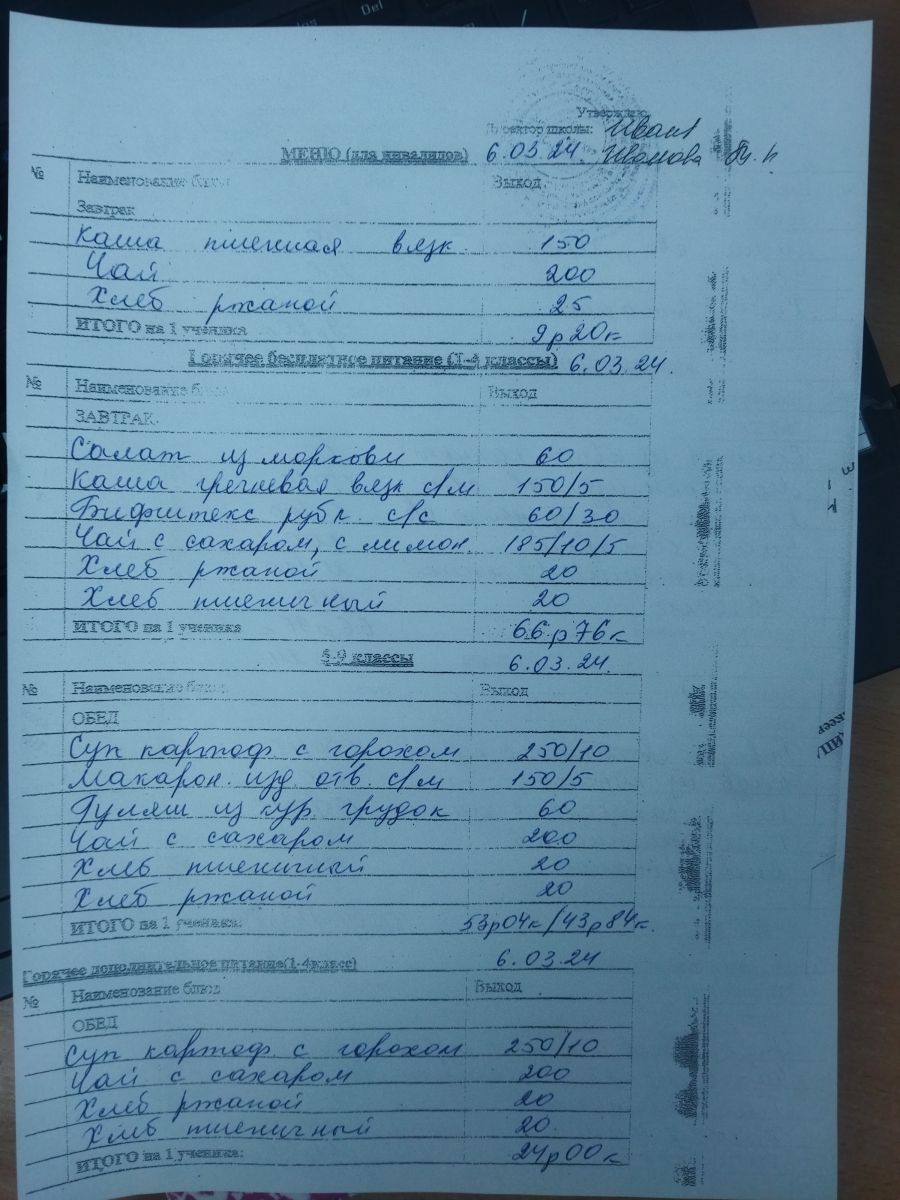 Del
Утверждаю
Директор школы:
МЕНЮ (для инвалидов) 6.03.24. Иванова
№ Наименование блюд Выход
Завтрак
Каша пшенная вязк. 150
Чай 200
Хлеб ржаной 25
ИТОГО на 1 ученика 9р20к
Горячее бесплатное питание (1-4 классы) 6.03.24.
№ Наименование блюд Выход
ЗАВТРАК.
Салат из моркови 60
Каша гречневая вязк с/м 150/5
Бифштекс рубл. с/с 60/30
Чай с сахаром, с лимон. 185/10/5
Хлеб ржаной 20
Хлеб пшеничный 20
ИТОГО на 1 ученика 66р76к
5-9 классы 6.03.24.
№ Наименование блюд Выход
ОБЕД
Суп картоф. с горохом 250/10
Макарон. изд отв. с/м 150/5
Гуляш из кур. грудок 60
Чай с сахаром 200
Хлеб пшеничный 20
Хлеб ржаной 20
ИТОГО на 1 ученика: 53р04к/43р84к.
Горячее дополнительное питание(1-4класс) 6.03.24
№ Наименование блюд Выход
ОБЕД
Суп картоф. с горохом 250/10
Чай с сахаром 200
Хлеб ржаной 20
Хлеб пшеничный 20.
ИТОГО на 1 ученика: 24р00к